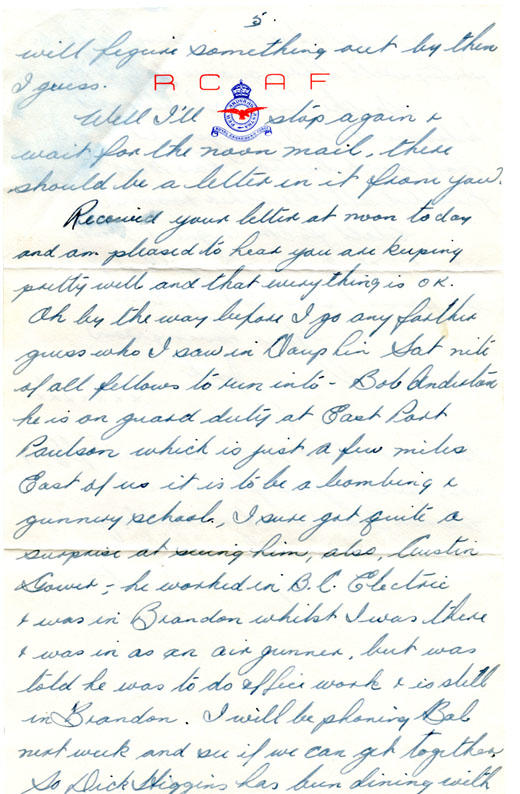 5.
will figure something out by then
I guess.
R C A F
Well I'll stop again &
wait for the noon mail, there
should be a letter in it from you.
Received your letter at noon today
and am pleased to hear you are keeping
pretty well and that everything is OK.
Oh by the way before I go any farther
guess who I saw in Dauphin Sat nite
of all fellows to run into - Bob Anderton
he is on guard duty at East Port
Paulson which is just a few miles
East of us it is to be a bombing &
gunnery school, I sure got quite a
surprise at seeing him, also, Austin
Gower - he worked in B.C. Electric
& was in Brandon whilst I was there
& was in as an air gunner, but was
told he was to do office work & is still
in Brandon. I will be phoning Bob
next week and see if we can get together.
So Dick Higgins has been dining with